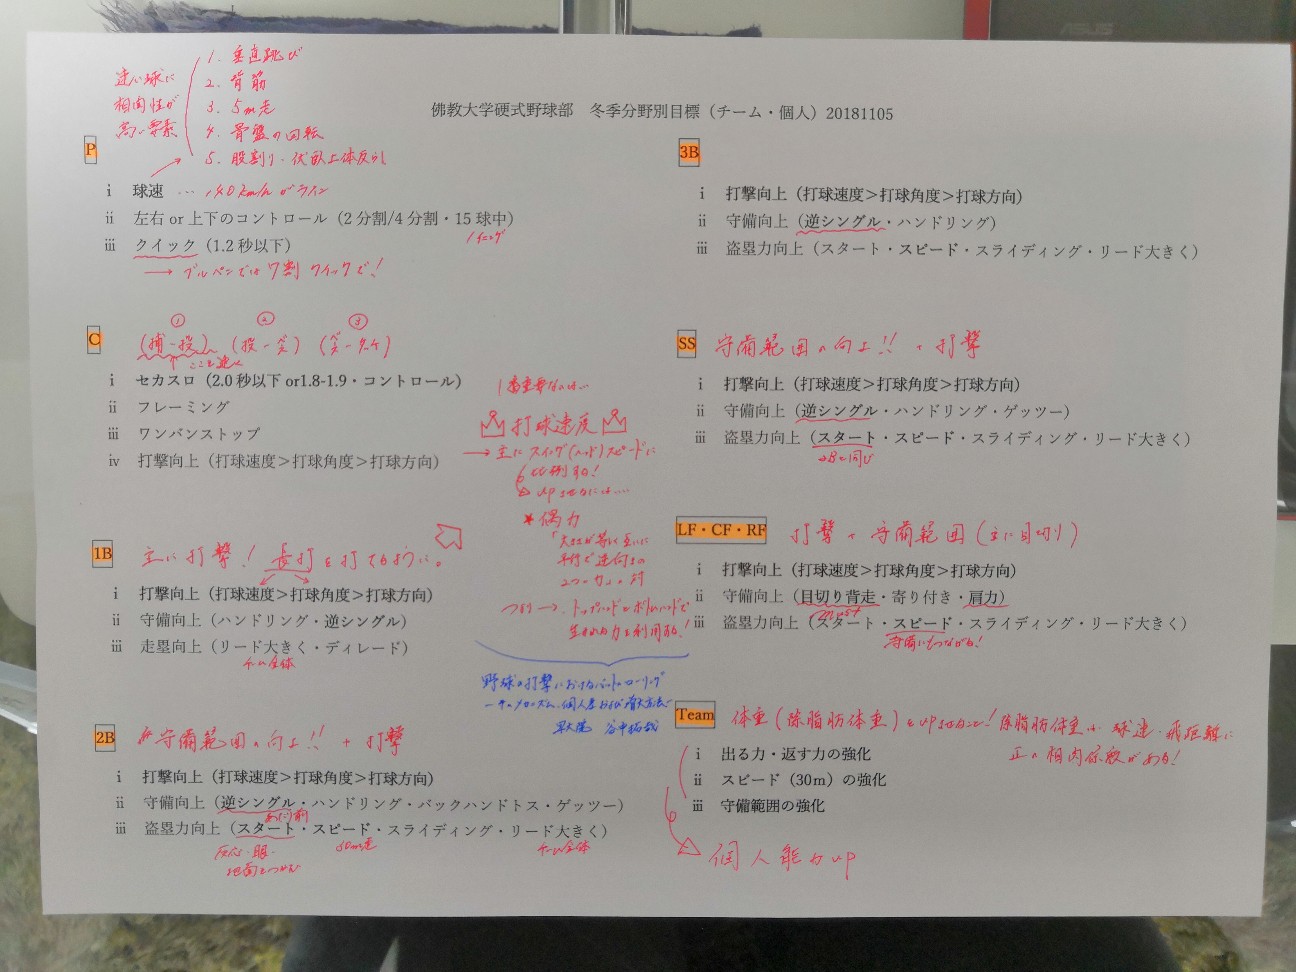 ASUS
佛教大学硬式野球部 冬季分野別目標(チーム・個人)20181105
速い球に
相関性が
高い要素
1. 垂直跳び
2. 背筋
3. 5m走
4. 骨盤の回転
5. 股割り・伏臥上体反らし
P
i 球速 … 140km/hがライン
ii 左右 or 上下のコントロール(2分割/4分割・15球中)
1イニング
iii クイック(1.2秒以下)
→ ブルペンでは7割クイックで!
C
① ② ③
(捕-投) (投-ベース) (ベース-タッチ)
ここを速く
i セカスロ(2.0秒以下or1.8-1.9・コントロール)
ii フレーミング
iii ワンバンストップ
iv 打撃向上(打球速度>打球角度>打球方向)
1B 主に打撃! 長打を打てるように。
i 打撃向上(打球速度>打球角度>打球方向)
ii 守備向上(ハンドリング・逆シングル)
iii 走塁向上(リード大きく・ディレード)
チーム全体
2B 守備範囲の向上!! + 打撃
i 打撃向上(打球速度>打球角度>打球方向)
ii 守備向上(逆シングル・ハンドリング・バックハンドトス・ゲッツー)
あたり前
iii 盗塁力向上(スタート・スピード・スライディング・リード大きく)
反応・眼・
地面をつかむ
30m走
チーム全体
1番重要なのは…
打球速度
→ 主にスイング(ヘッド)スピードに
比例する!
upさせるには……
* 偶力
「大きさが等しく互いに
平行で逆向きの
2つの力」の対
つまり→ トップハンドとボトムハンドで
生まれる力を利用する!
野球の打撃におけるバットのローリング
ーそのメカニズム、個人差および増大方法ー
早大院 谷中拓哉
3B
i 打撃向上(打球速度>打球角度>打球方向)
ii 守備向上(逆シングル・ハンドリング)
iii 盗塁力向上(スタート・スピード・スライディング・リード大きく)
SS 守備範囲の向上!! + 打撃
i 打撃向上(打球速度>打球角度>打球方向)
ii 守備向上(逆シングル・ハンドリング・ゲッツー)
iii 盗塁力向上(スタート・スピード・スライディング・リード大きく)
2Bと同じ
LF・CF・RF 打撃 + 守備範囲(主に目切り)
i 打撃向上(打球速度>打球角度>打球方向)
ii 守備向上(目切り背走・寄り付き・肩力)
must
iii 盗塁力向上(スタート・スピード・スライディング・リード大きく)
守備にもつながる!
Team 体重(除脂肪体重)をupさせること! 除脂肪体重は球速・飛距離に
正の相関係数がある!
i 出る力・返す力の強化
ii スピード(30m)の強化
iii 守備範囲の強化
個人能力up